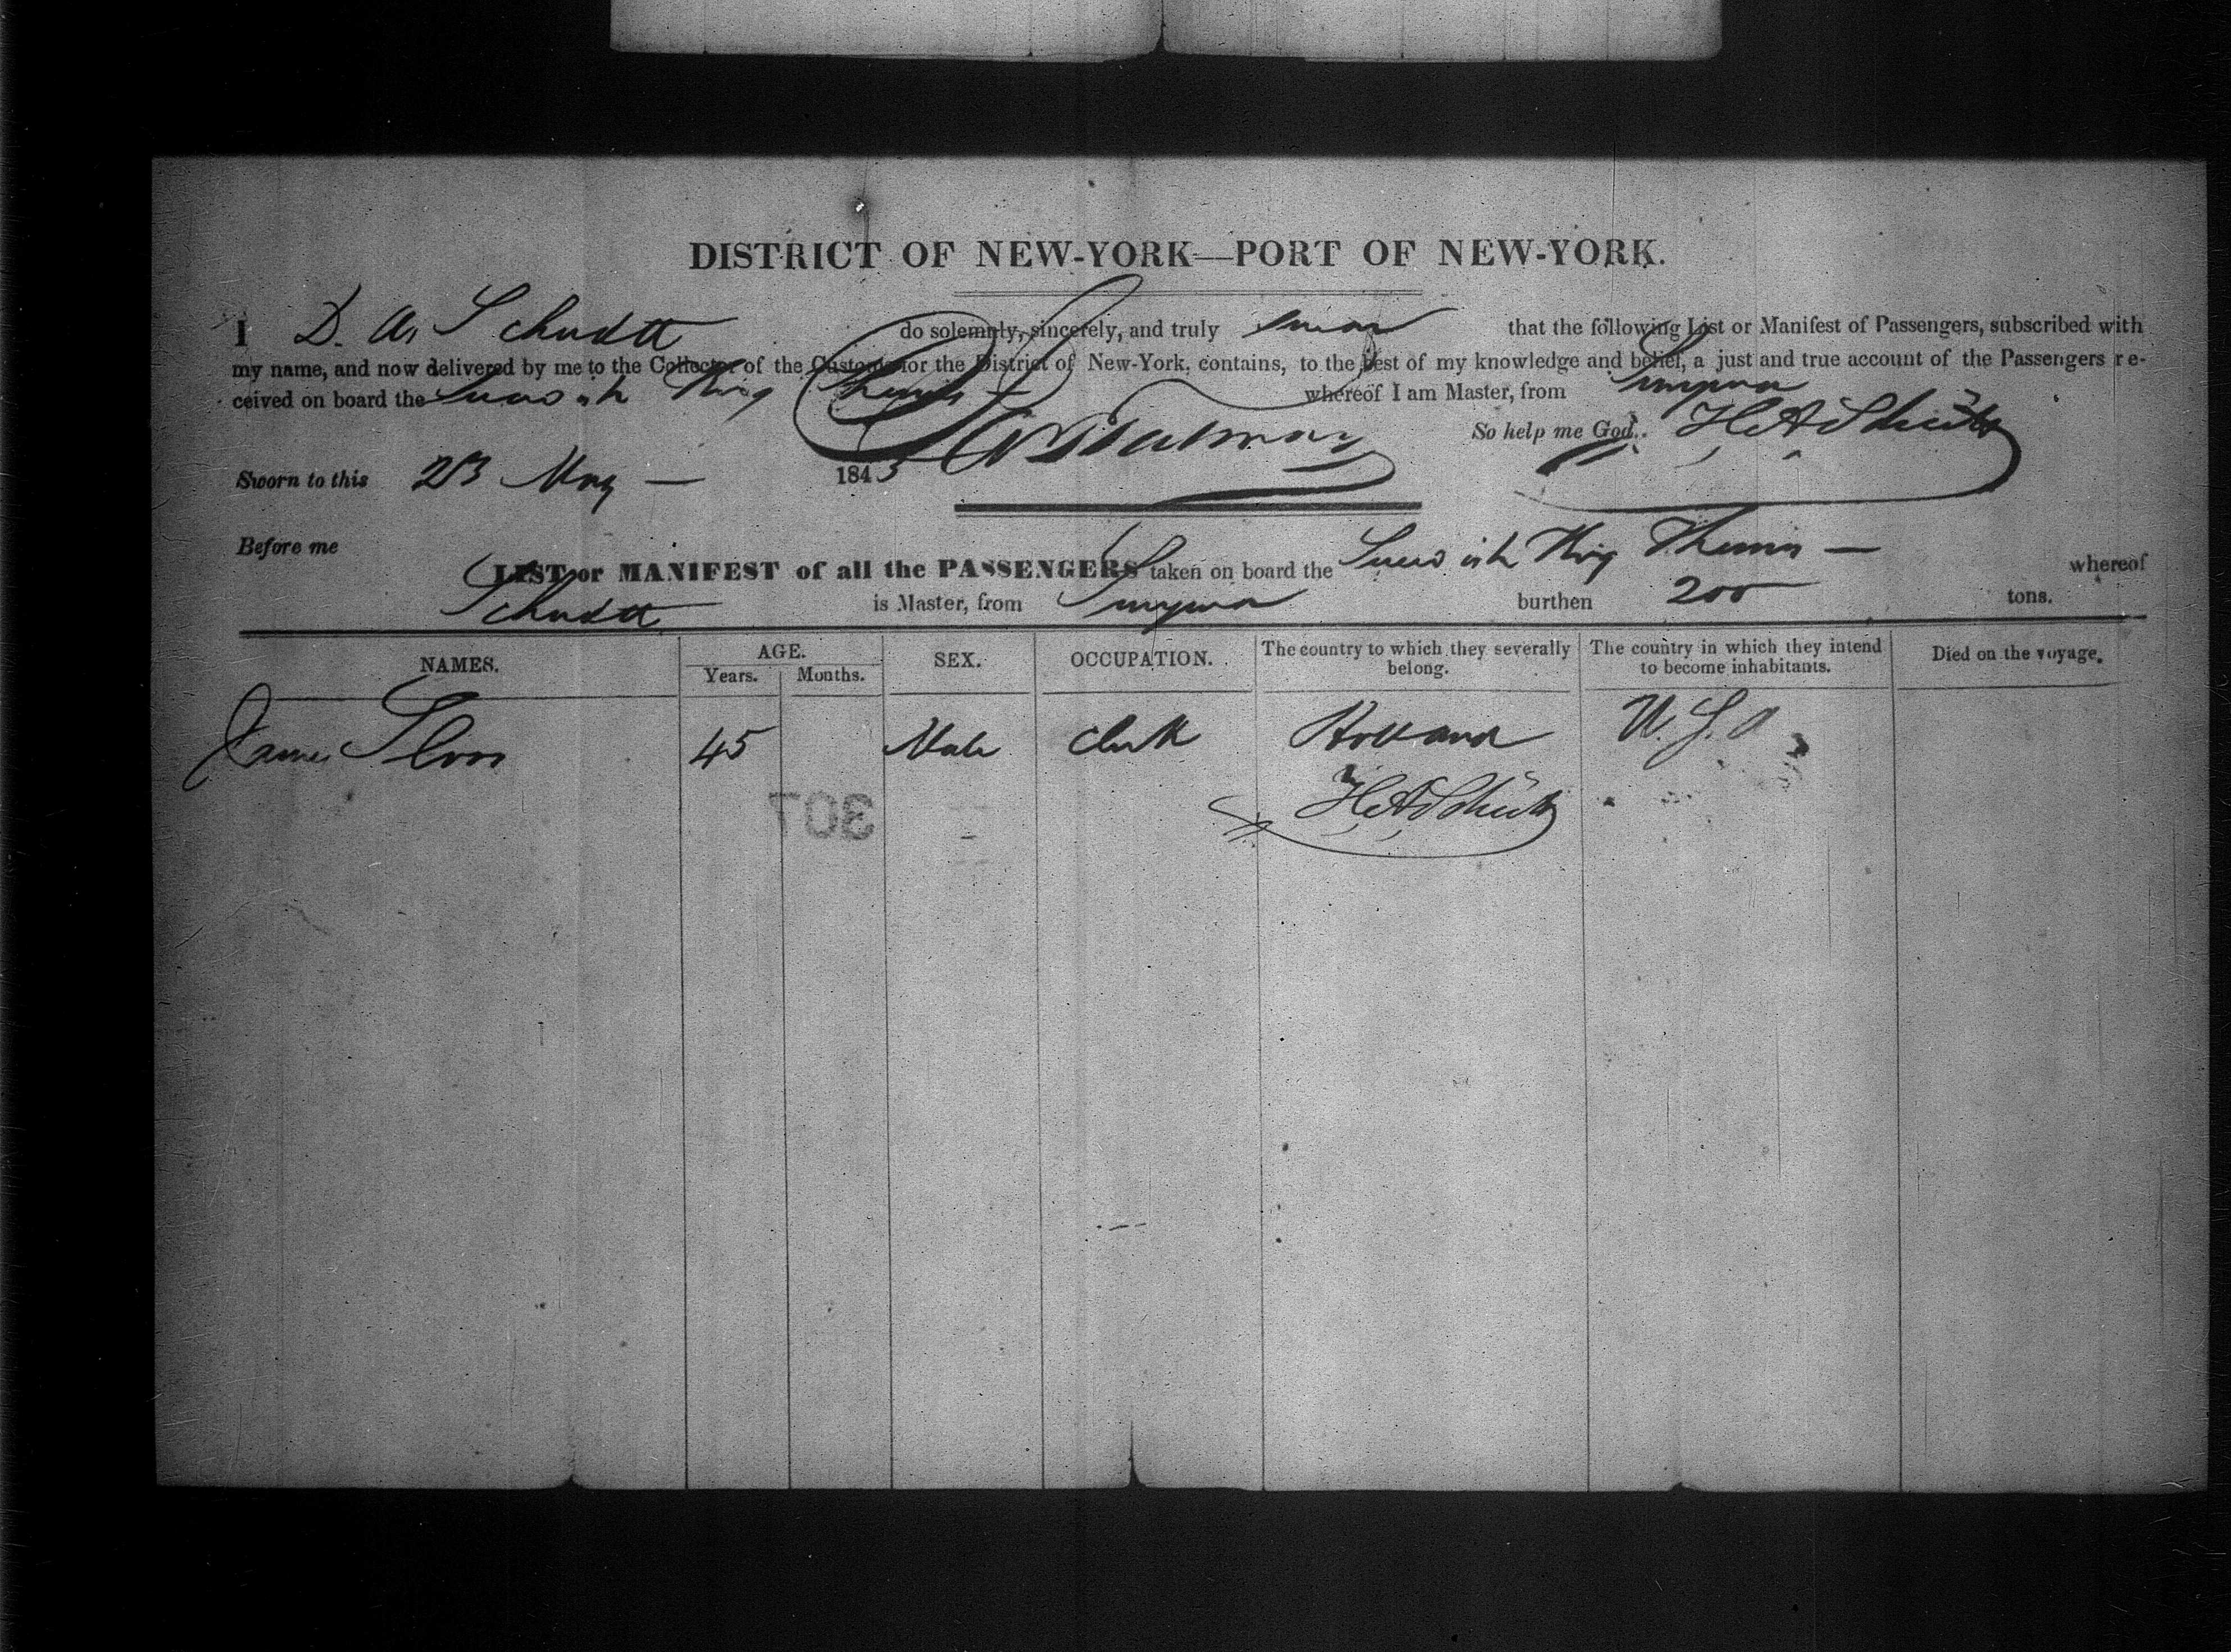 DISTRICT OF NEW-YORK—PORT OF NEW-YORK.
I D. A. Schudtt do solemnly, sincerely, and truly swear that the following List or Manifest of Passengers, subscribed with
my name, and now delivered by me to the Collector of the Customs for the District of New-York, contains, to the best of my knowledge and belief, a just and true account of the Passengers re-
ceived on board the Swedish Brig Themis whereof I am Master, from Smyrna
So help me God.
Sworn to this 23 May — 1843
Before me
LIST or MANIFEST of all the PASSENGERS taken on board the Swedish Brig Themis — whereof
Schudtt is Master, from Smyrna burthen 200 tons.
NAMES. AGE. Years. Months. SEX. OCCUPATION. The country to which they severally belong. The country in which they intend to become inhabitants. Died on the voyage.
James 45 Male Clerk Holland U.S.A
307